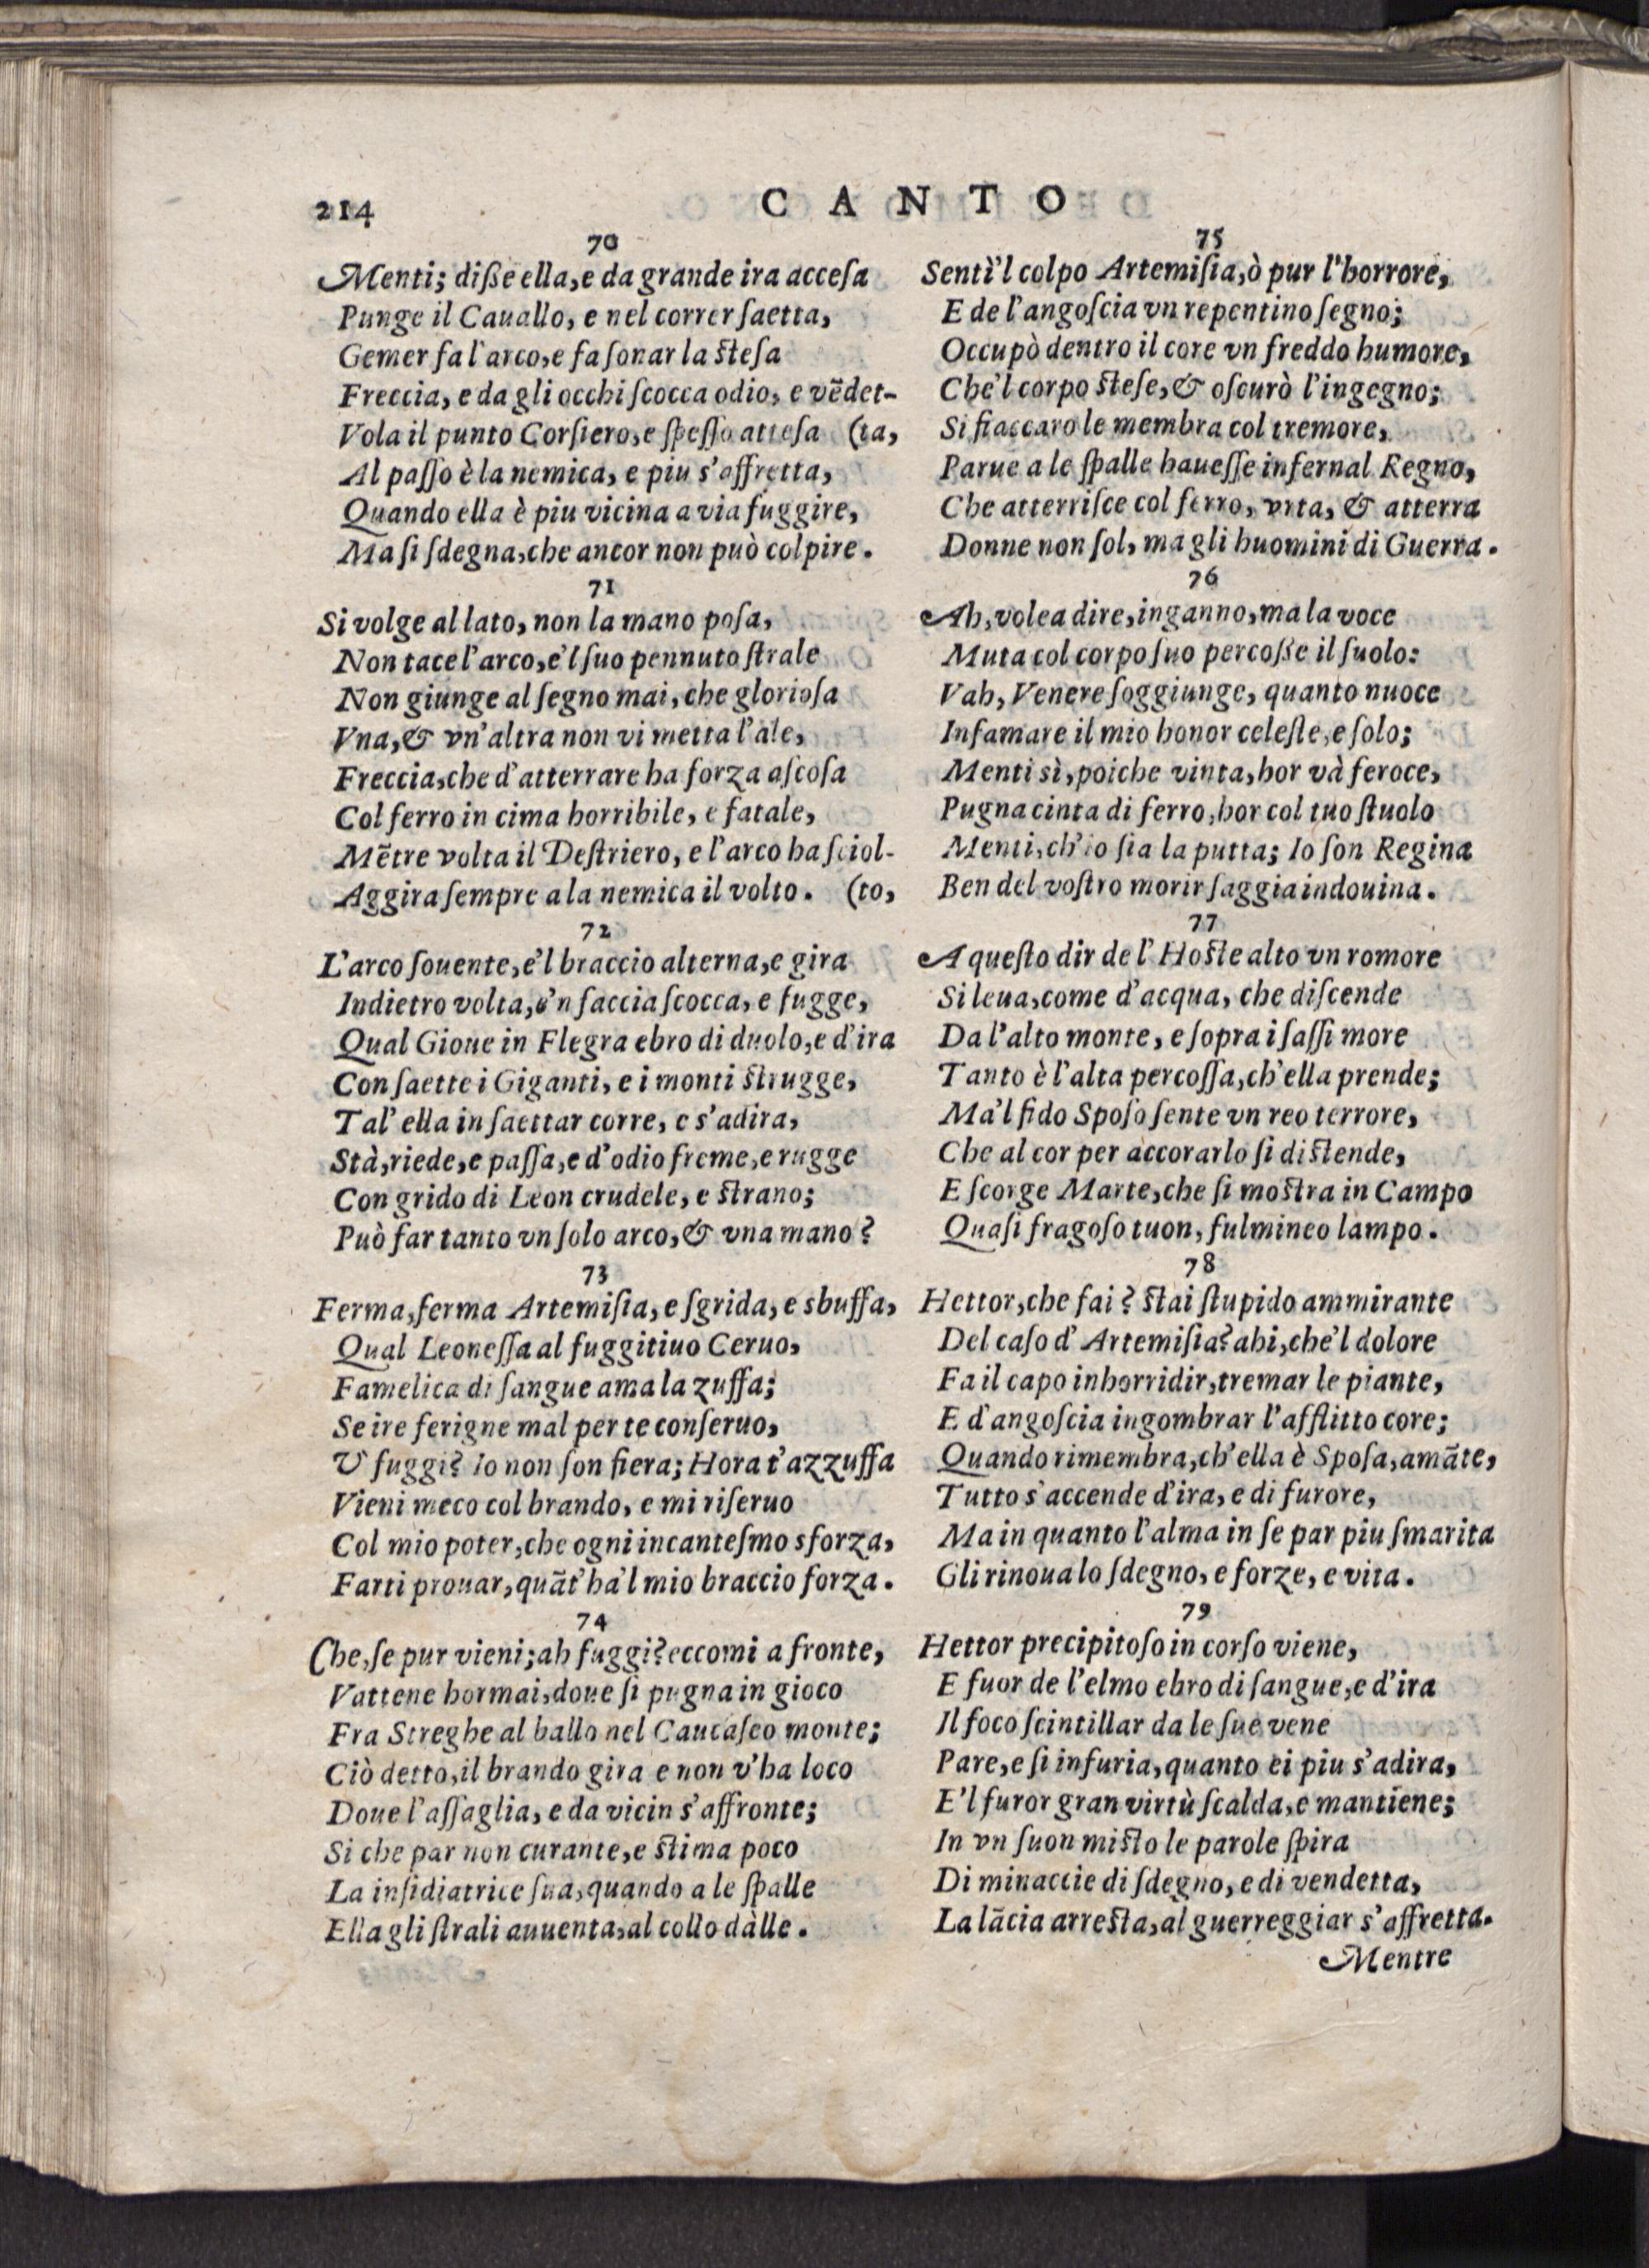 214
CANTO
70
Menti; disse ella, e da grande ira accesa
Punge il Cauallo, e nel correr saetta,
Gemer fa l'arco, e fa sonar la stesa
Freccia, e da gli occhi scocca odio, e vẽdet-
Vola il punto Corsiero, e spesso attesa (ta,
Al passo è la nemica, e piu s'affretta,
Quando ella è piu vicina a via fuggire,
Ma si sdegna, che ancor non può colpire.
71
Si volge al lato, non la mano posa,
Non tace l'arco, e'l suo pennuto strale
Non giunge al segno mai, che gloriosa
Vna, & vn'altra non vi metta l'ale,
Freccia, che d'atterrare ha forza ascosa
Col ferro in cima horribile, e fatale,
Mẽtre volta il Destriero, e l'arco ha sciol-
Aggira sempre a la nemica il volto. (to,
72
L'arco souente, e'l braccio alterna, e gira
Indietro volta, e'n faccia scocca, e fugge,
Qual Gioue in Flegra ebro di duolo, e d'ira
Con saette i Giganti, e i monti strugge,
Tal' ella in saettar corre, e s'adira,
Stà, riede, e passa, e d'odio freme, e rugge
Con grido di Leon crudele, e strano;
Può far tanto vn solo arco, & vna mano?
73
Ferma, ferma Artemisia, e sgrida, e sbuffa,
Qual Leonessa al fuggitiuo Ceruo,
Famelica di sangue ama la zuffa;
Se ire ferigne mal per te conseruo,
V' fuggi? Io non son fiera; Hora t'azzuffa
Vieni meco col brando, e mi riseruo
Col mio poter, che ogni incantesmo sforza,
Farti prouar, quãt'ha'l mio braccio forza.
74
Che, se pur vieni; ah fuggi? eccomi a fronte,
Vattene hormai, doue si pugna in gioco
Fra Streghe al ballo nel Caucaseo monte;
Ciò detto, il brando gira e non v'ha loco
Doue l'assaglia, e da vicin s'affronte;
Si che par non curante, e stima poco
La insidiatrice sua, quando a le spalle
Ella gli strali auuenta, al collo dàlle.
75
Sentì'l colpo Artemisia, ò pur l'horrore,
E de l'angoscia vn repentino segno;
Occupò dentro il core vn freddo humore,
Che'l corpo stese, & oscurò l'ingegno;
Si fiaccaro le membra col tremore,
Parue a le spalle hauesse infernal Regno,
Che atterrisce col ferro, vrta, & atterra
Donne non sol, ma gli huomini di Guerra.
76
Ah, volea dire, inganno, ma la voce
Muta col corpo suo percosse il suolo:
Vah, Venere soggiunge, quanto nuoce
Infamare il mio honor celeste, e solo;
Menti sì, poiche vinta, hor và feroce,
Pugna cinta di ferro, hor col tuo stuolo
Menti, ch'io sia la putta; Io son Regina
Ben del vostro morir saggia indouina.
77
A questo dir de l'Hoste alto vn romore
Si leua, come d'acqua, che discende
Da l'alto monte, e sopra i sassi more
Tanto è l'alta percossa, ch'ella prende;
Ma'l fido Sposo sente vn reo terrore,
Che al cor per accorarlo si distende,
E scorge Marte, che si mostra in Campo
Quasi fragoso tuon, fulmineo lampo.
78
Hettor, che fai? stai stupido ammirante
Del caso d'Artemisia? ahi, che'l dolore
Fa il capo inhorridir, tremar le piante,
E d'angoscia ingombrar l'afflitto core;
Quando rimembra, ch'ella è Sposa, amãte,
Tutto s'accende d'ira, e di furore,
Ma in quanto l'alma in se par piu smarita
Gli rinoua lo sdegno, e forze, e vita.
79
Hettor precipitoso in corso viene,
E fuor de l'elmo ebro di sangue, e d'ira
Il foco scintillar da le sue vene
Pare, e si infuria, quanto ei piu s'adira,
E'l furor gran virtù scalda, e mantiene;
In vn suon misto le parole spira
Di minaccie di sdegno, e di vendetta,
La lãcia arresta, al guerreggiar s'affretta.
Mentre